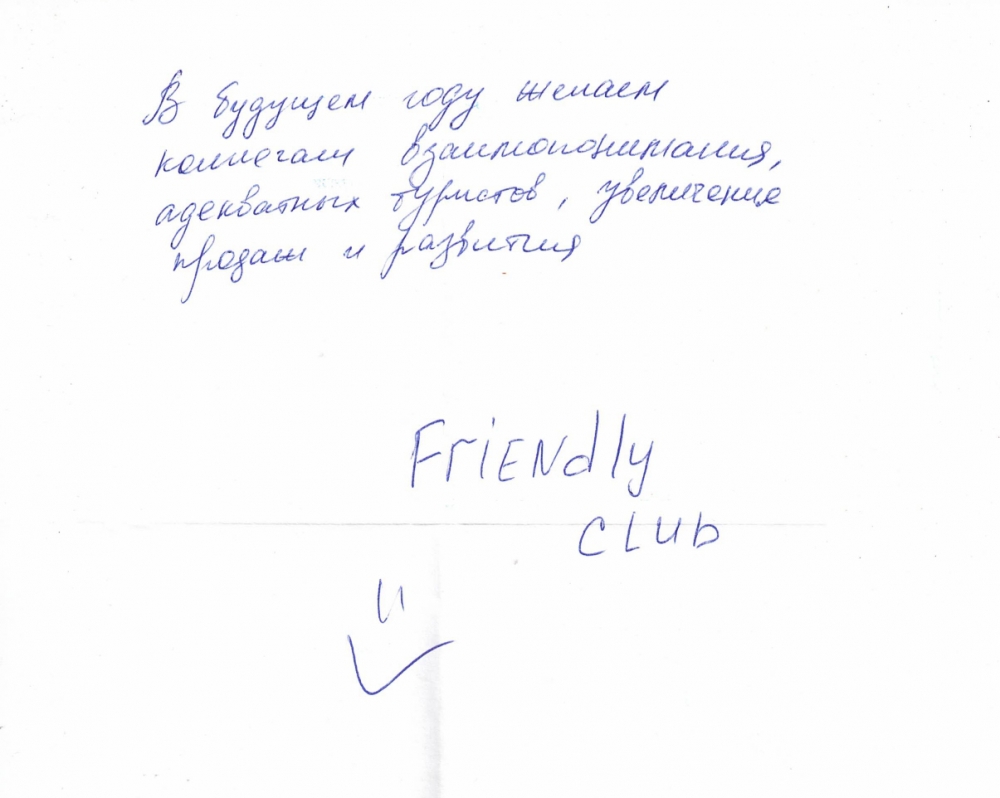 В будущем году желаем
коллегам взаимопонимания,
адекватных туристов, увеличение
продаж и развития
Friendly
club